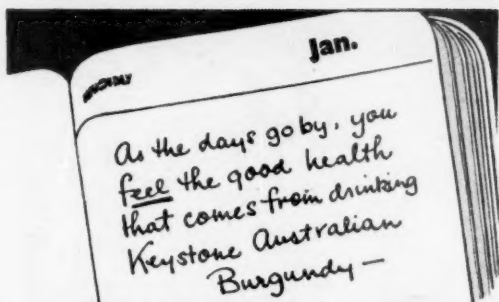 MONDAY
Jan.
As the days go by, you
feel the good health
that comes from drinking
Keystone Australian
Burgundy —